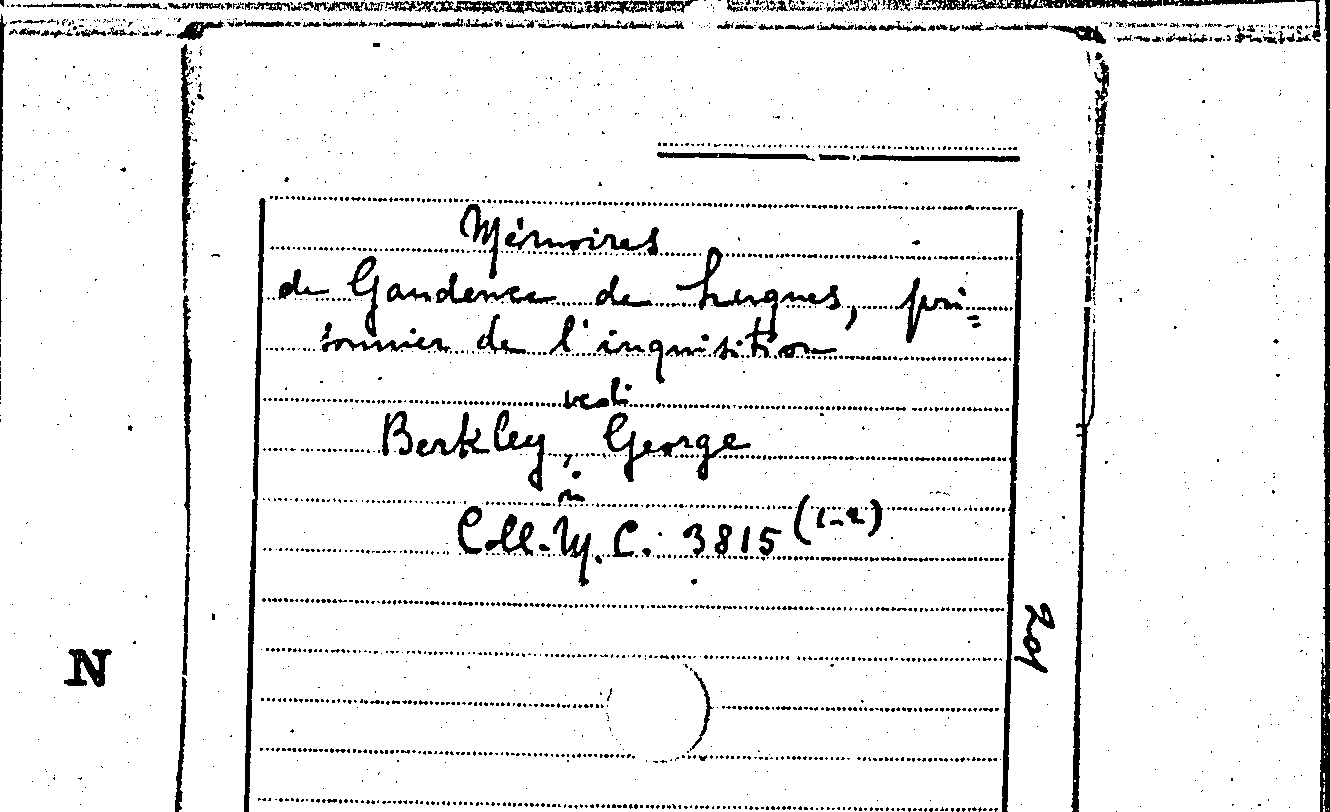 Mémoires
de Gaudence de Lucques, pri=
sonnier de l'inquisition
vedi
Berkley, George
in
Coll. M. C. 3815 (1-2)
201
N